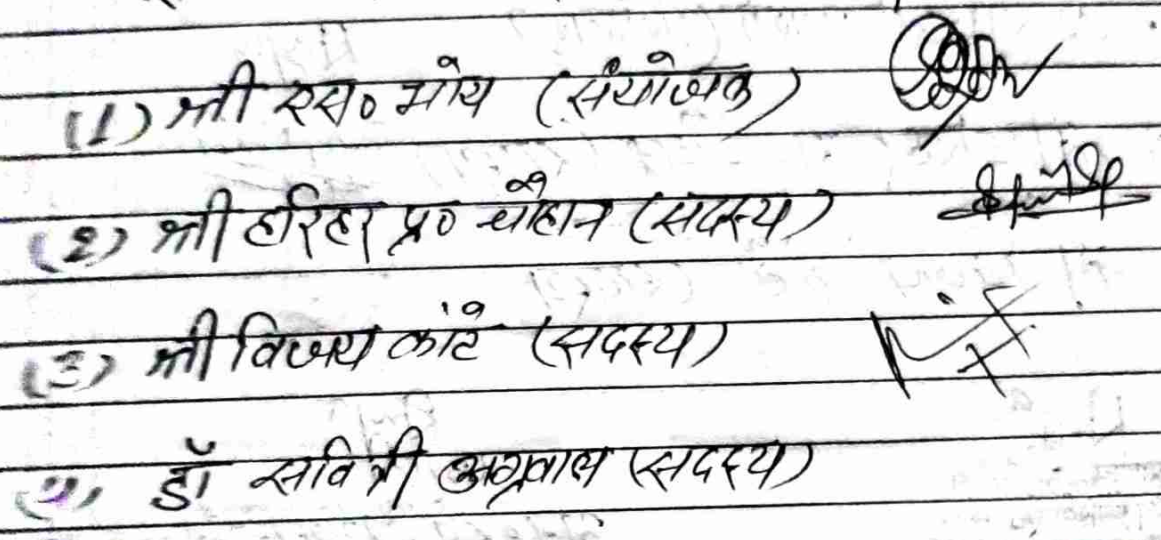 (1) श्री एस० भोय (संयोजक)
(2) श्री हरिहर प्र० चौहान (सदस्य)
(3) श्री विजय कांटे (सदस्य)
(4) डॉ सवित्री अग्रवाल (सदस्य)